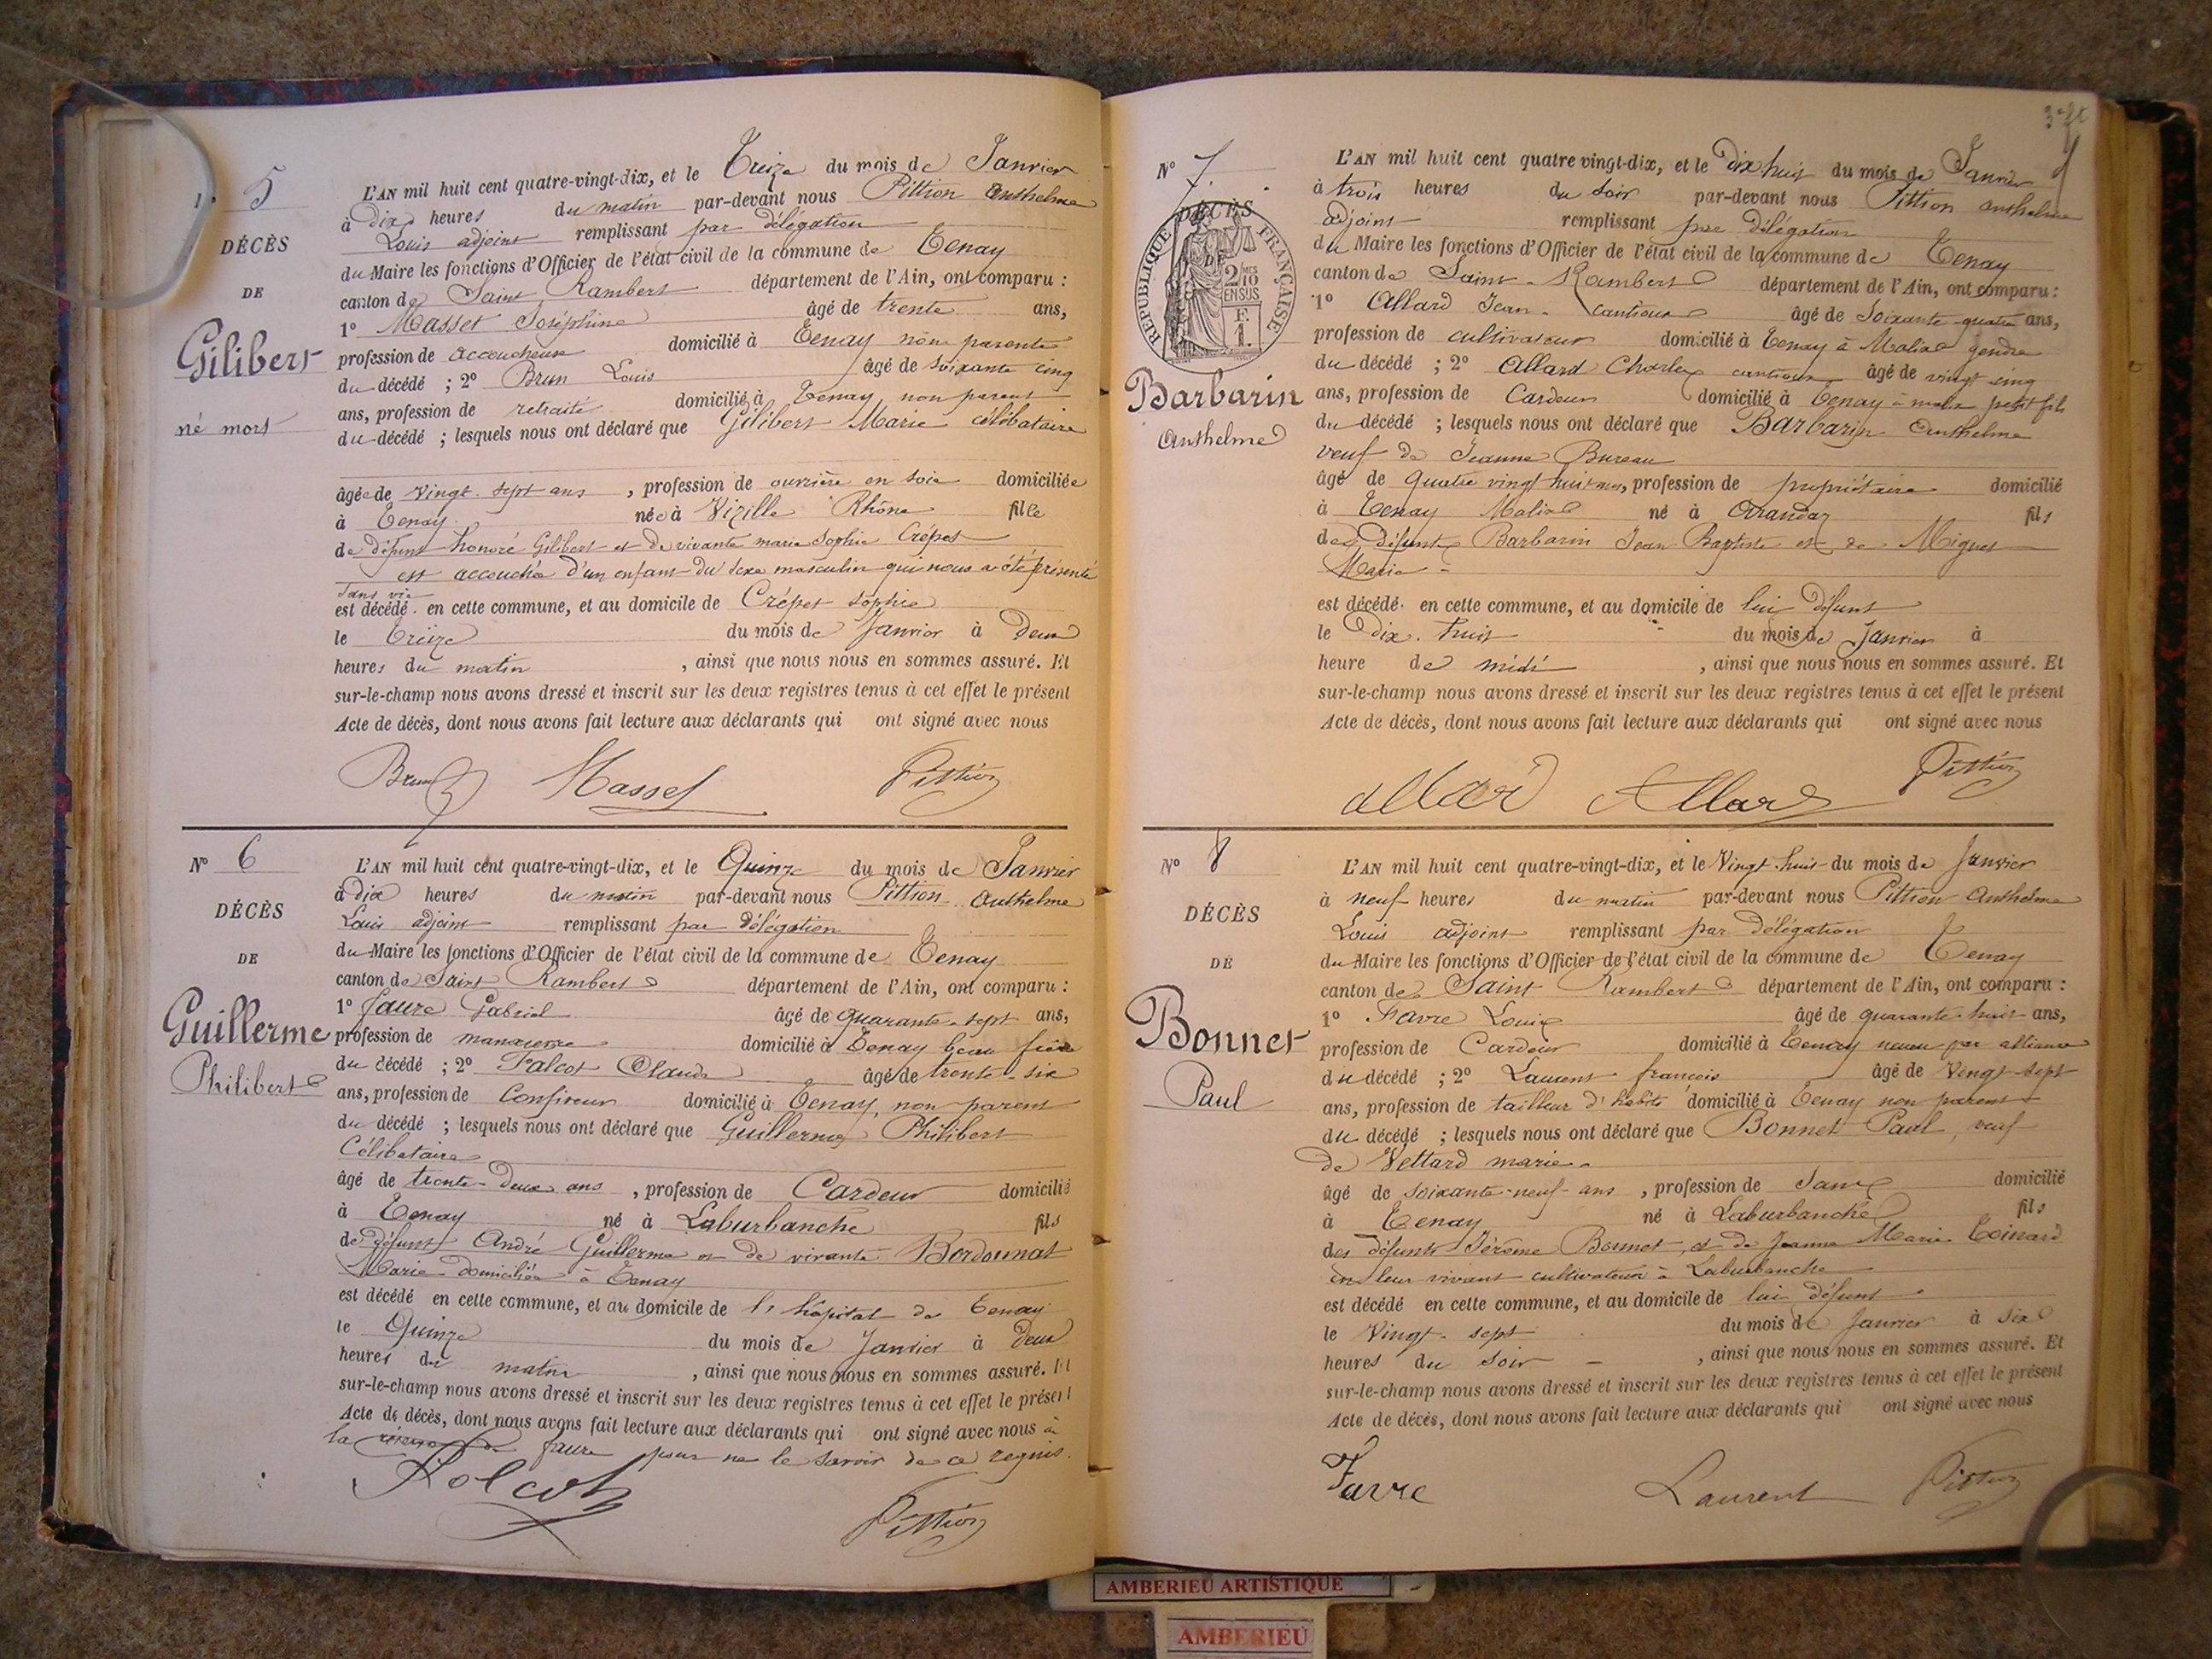 5
DÉCÈS
DE
Gilibert
né mort
L'AN mil huit cent quatre-vingt-dix, et le Treize du mois de Janvier
à dix heures du matin par-devant nous Pittion Anthelme
Louis adjoint remplissant par délégation
du Maire les fonctions d'Officier de l'état civil de la commune de Tenay
canton de Saint Rambert département de l'Ain, ont comparu :
1º Masset Joséphine âgé de trente ans,
profession de accoucheuse domicilié à Tenay non parente
du décédé ; 2º Brun Louis âgé de soixante cinq
ans, profession de retraité domicilié à Tenay non parent
du décédé ; lesquels nous ont déclaré que Gilibert Marie célibataire
âgée de vingt-sept ans , profession de ouvrière en soie domiciliée
à Tenay née à Vizille Rhône fille
de défunt honoré Gilibert et de vivante marie Sophie Crépet
est accouchée d'un enfant du sexe masculin qui nous a été présenté
sans vie
est décédé en cette commune, et au domicile de Crépet Sophie
le treize du mois de Janvier à Deux
heures du matin , ainsi que nous nous en sommes assuré. Et
sur-le-champ nous avons dressé et inscrit sur les deux registres tenus à cet effet le présent
Acte de décès, dont nous avons fait lecture aux déclarants qui ont signé avec nous
Brun Masset Pittion
Nº 6
DÉCÈS
DE
Guillerme
Philibert
L'AN mil huit cent quatre-vingt-dix, et le Quinze du mois de Janvier
à dix heures du matin par-devant nous Pittion Anthelme
Louis adjoint remplissant par délégation
du Maire les fonctions d'Officier de l'état civil de la commune de Tenay
canton de Saint Rambert département de l'Ain, ont comparu :
1º Faure Gabriel âgé de quarante-sept ans,
profession de domicilié à Tenay beau frère
du décédé ; 2º Falcot Claude âgé de trente-six
ans, profession de Confiseur domicilié à Tenay, non parent
du décédé ; lesquels nous ont déclaré que Guillerme Philibert
Célibataire
âgé de trente-deux ans , profession de Cardeur domicilié
à Tenay né à Laburbanche fils
de défunt André Guillerme et de vivante Bordonnat
Marie domiciliée à Tenay
est décédé en cette commune, et au domicile de l'hôpital de Tenay
le Quinze du mois de Janvier à Deux
heures du matin , ainsi que nous nous en sommes assuré. Et
sur-le-champ nous avons dressé et inscrit sur les deux registres tenus à cet effet le présent
Acte de décès, dont nous avons fait lecture aux déclarants qui ont signé avec nous
la Faure pour ne le savoir de ce requis.
Folcot Pittion
Nº 7.
DÉCÈS
DE
RÉPUBLIQUE FRANÇAISE
2/10 EN SUS
F. 1.
Barbarin
Anthelme
L'AN mil huit cent quatre vingt-dix, et le Dix huit du mois de Janvier
à trois heures du soir par-devant nous Pittion anthelme
adjoint remplissant par délégation
du Maire les fonctions d'Officier de l'état civil de la commune de Tenay
canton de Saint-Rambert département de l'Ain, ont comparu :
1º Allard Jean âgé de soixante-quatre ans,
profession de cultivateur domicilié à Tenay à Malix gendre
du décédé ; 2º Allard Charles âgé de vingt cinq
ans, profession de Cardeur domicilié à Tenay à malix petit fils
du décédé ; lesquels nous ont déclaré que Barbarin Anthelme
veuf de Jeanne Bureau
âgé de quatre vingt huit ans, profession de propriétaire domicilié
à Tenay Malix né à Arandaz fils
des défunts Barbarin Jean Baptiste et de Miguet
Marie
est décédé en cette commune, et au domicile de lui défunt
le Dix-huit du mois de Janvier à
heure de midi , ainsi que nous nous en sommes assuré. Et
sur-le-champ nous avons dressé et inscrit sur les deux registres tenus à cet effet le présent
Acte de décès, dont nous avons fait lecture aux déclarants qui ont signé avec nous
allard Allard Pittion
Nº 8
DÉCÈS
DE
Bonnet
Paul
L'AN mil huit cent quatre-vingt-dix, et le Vingt-huit du mois de Janvier
à neuf heures du matin par-devant nous Pittion Anthelme
Louis adjoint remplissant par délégation
du Maire les fonctions d'Officier de l'état civil de la commune de Tenay
canton de Saint Rambert département de l'Ain, ont comparu :
1º Favre Louis âgé de quarante-huit ans,
profession de Cardeur domicilié à Tenay neveu par alliance
du décédé ; 2º Laurent françois âgé de Vingt-sept
ans, profession de tailleur d'habits domicilié à Tenay non parent
du décédé ; lesquels nous ont déclaré que Bonnet Paul, veuf
de Vettard marie
âgé de soixante-neuf ans , profession de sans domicilié
à Tenay né à Laburbanche fils
des défunts Jérôme Bonnet, et de Jeanne Marie Toinard
en leur vivant cultivateurs à Laburbanche
est décédé en cette commune, et au domicile de lui défunt
le Vingt-sept du mois de Janvier à six
heures du soir , ainsi que nous nous en sommes assuré. Et
sur-le-champ nous avons dressé et inscrit sur les deux registres tenus à cet effet le présent
Acte de décès, dont nous avons fait lecture aux déclarants qui ont signé avec nous
Favre Laurent Pittion
AMBERIEU ARTISTIQUE
AMBERIEU